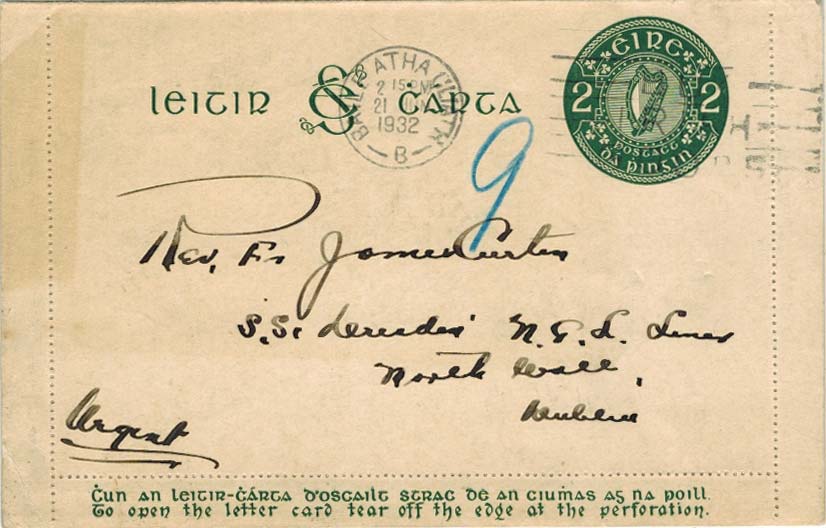 LEITIR CÁRTA
BAILE ATHA CLIATH
2 15 PM
21 JUN
1932
B
ÉIRE
2 2
POSTAGE
DÁ PINGIN
9
Rev. Fr James Curtin
S.S. Dresden N.G.L. Liner
North Wall,
Dublin
Urgent
Ċun an leitir-ċárta d'oscailt strac de an ciuṁas ag na poill.
To open the letter card tear off the edge at the perforation.